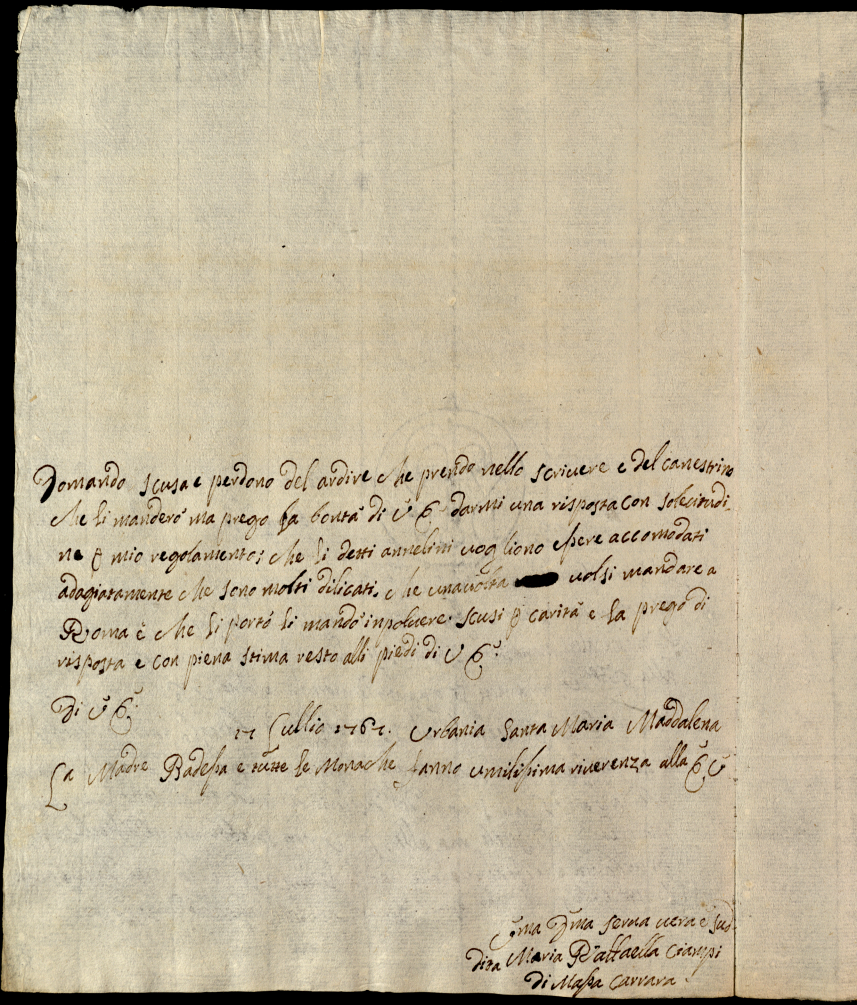 Domando scusa e perdono del ardire che prendo nello scrivere e del canestrino
che li manderò ma prego la bontà di V E darmi una risposta con solecitudi-
ne p mio regolamento; che li detti annelini vogliono essere accomodati
adagiatamente che sono molti dilicati, che una volta volsi mandare a
Roma e chi li portò li mandò in polvere. scusi p carità e la prego di
risposta e con piena stima resto alli piedi di V E
Di V E
17 Lullio 1767. Urbania Santa Maria Maddalena
La Madre Badessa e tutte le Monache fanno umilissima riverenza alla E V
serva vera e sud
dita Maria Raffaella Ciampi
di Massa Carrara